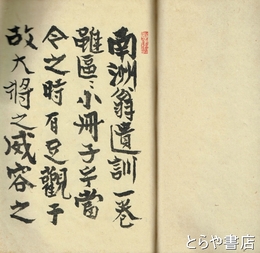 南洲翁遺訓一卷
雖區〻小冊子乎當
今之時有足觀乎
故大將之威容之
とらや書店